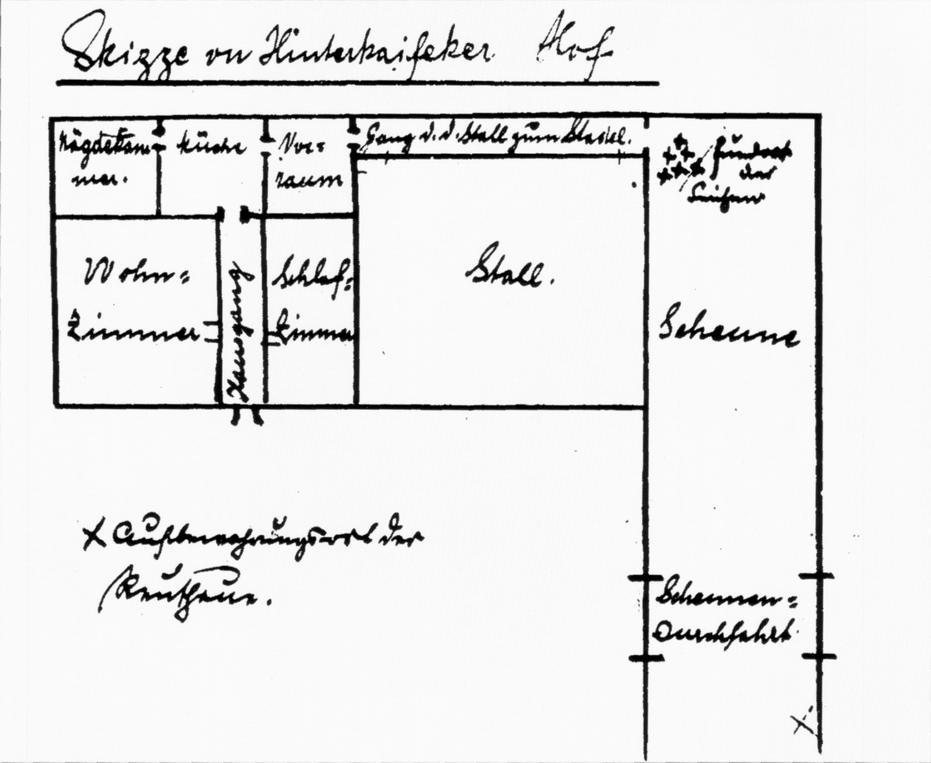 Skizze von Hinterkaifeker Hof
Mägdekam-
mer.
Küche
Vor=
raum
Gang v. d. Stall zum Stadel.
Fundort
der
Leichen
Wohn=
Zimmer
Hausgang
Schlaf=
Zimmer
Stall.
Scheune
x Aufbewahrungsort der
Reuthaue.
Scheunen=
Durchfahrt
x